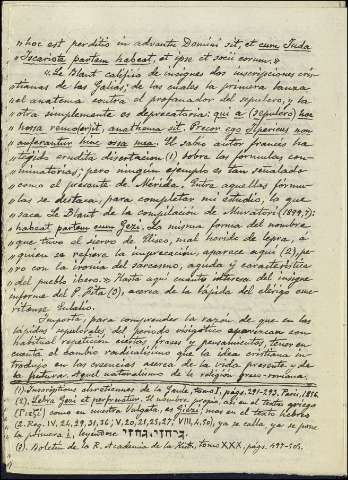 "hoc est perditio in adventu Domini sit, et cum Juda
"Iscariote partem habeat, et ipse et socii eorum."
"Le Blant califica de insignes dos inscripciones cris-
tianas de las Galias, de las cuales la primera lanza
el anatema contra el profanador del sepulcro, y la
otra simplemente es deprecatoria: qui a (sepulcro) hoc
hossa remoderit, anathema sit. Precor ego Ilpericus non
auferantur hinc ossa mea. El sabio autor francés ha
tejido erudita disertación (1) sobre las fórmulas con-
minatorias; pero ningún ejemplo es tan señalado
como el presente de Mérida. Entre aquellas fórmu-
las se destaca, para completar mi estudio, la que
saca Le Blant de la compilación de Muratori (1899, 7):
habeat partem cum Gezi. La misma forma del nombre
que tuvo el siervo de Eliseo, mal herido de lepra, á
quien se refiere la imprecación, aparece aquí (2), pe-
ro con la ironía del sarcasmo, aguda y característica
del pueblo ibero." Hasta aquí cuanto interesa del insigne
informe del P. Fita (3), acerca de la lápida del clérigo eme-
ritense Eulalio.
Importa, para comprender la razón de que en las
lápidas sepulcrales del período visigótico aparezcan con
habitual repetición ciertas frases y pensamientos, tener en
cuenta el cambio radicalísimo que la idea cristiana in-
trodujo en las creencias acerca de la vida presente y de
la futura. Aquel naturalismo de la religión greco-romana,
(1). Inscriptions chrétiennes de la Gaule, tomo I, págs. 291-293. Paris, 1856.
(2). Lebra Gezi et perfruatur. El nombre propio, así en el texto griego
(Γιεζί) como en nuestra Vulgata, es Giezi; mas en el texto hebreo
(2. Reg. IV, 24, 29, 31, 36; V, 20, 21, 25, 27; VIII, 4, 50), ya se calla, ya se pone
la primera i, leyéndose גיחזי, גחזי.
(3). Boletín de la R. Academia de la Hist., tomo XXX, págs. 497-505.